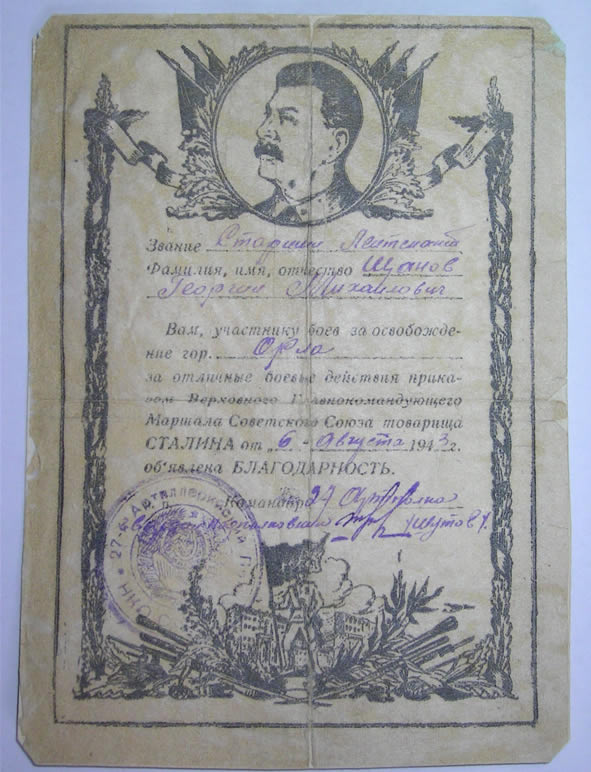 Звание Старший Лейтенант
Фамилия, имя, отчество Щанов
Георгий Михайлович
Вам, участнику боев за освобожде-
ние гор. Орла
за отличные боевые действия прика-
зом Верховного Главнокомандующего
Маршала Советского Союза товарища
СТАЛИНА от „6 - Августа 1943 г.
об'явлена БЛАГОДАРНОСТЬ.
Командир 27 Артполка
Шутов
27-й Артиллерийский